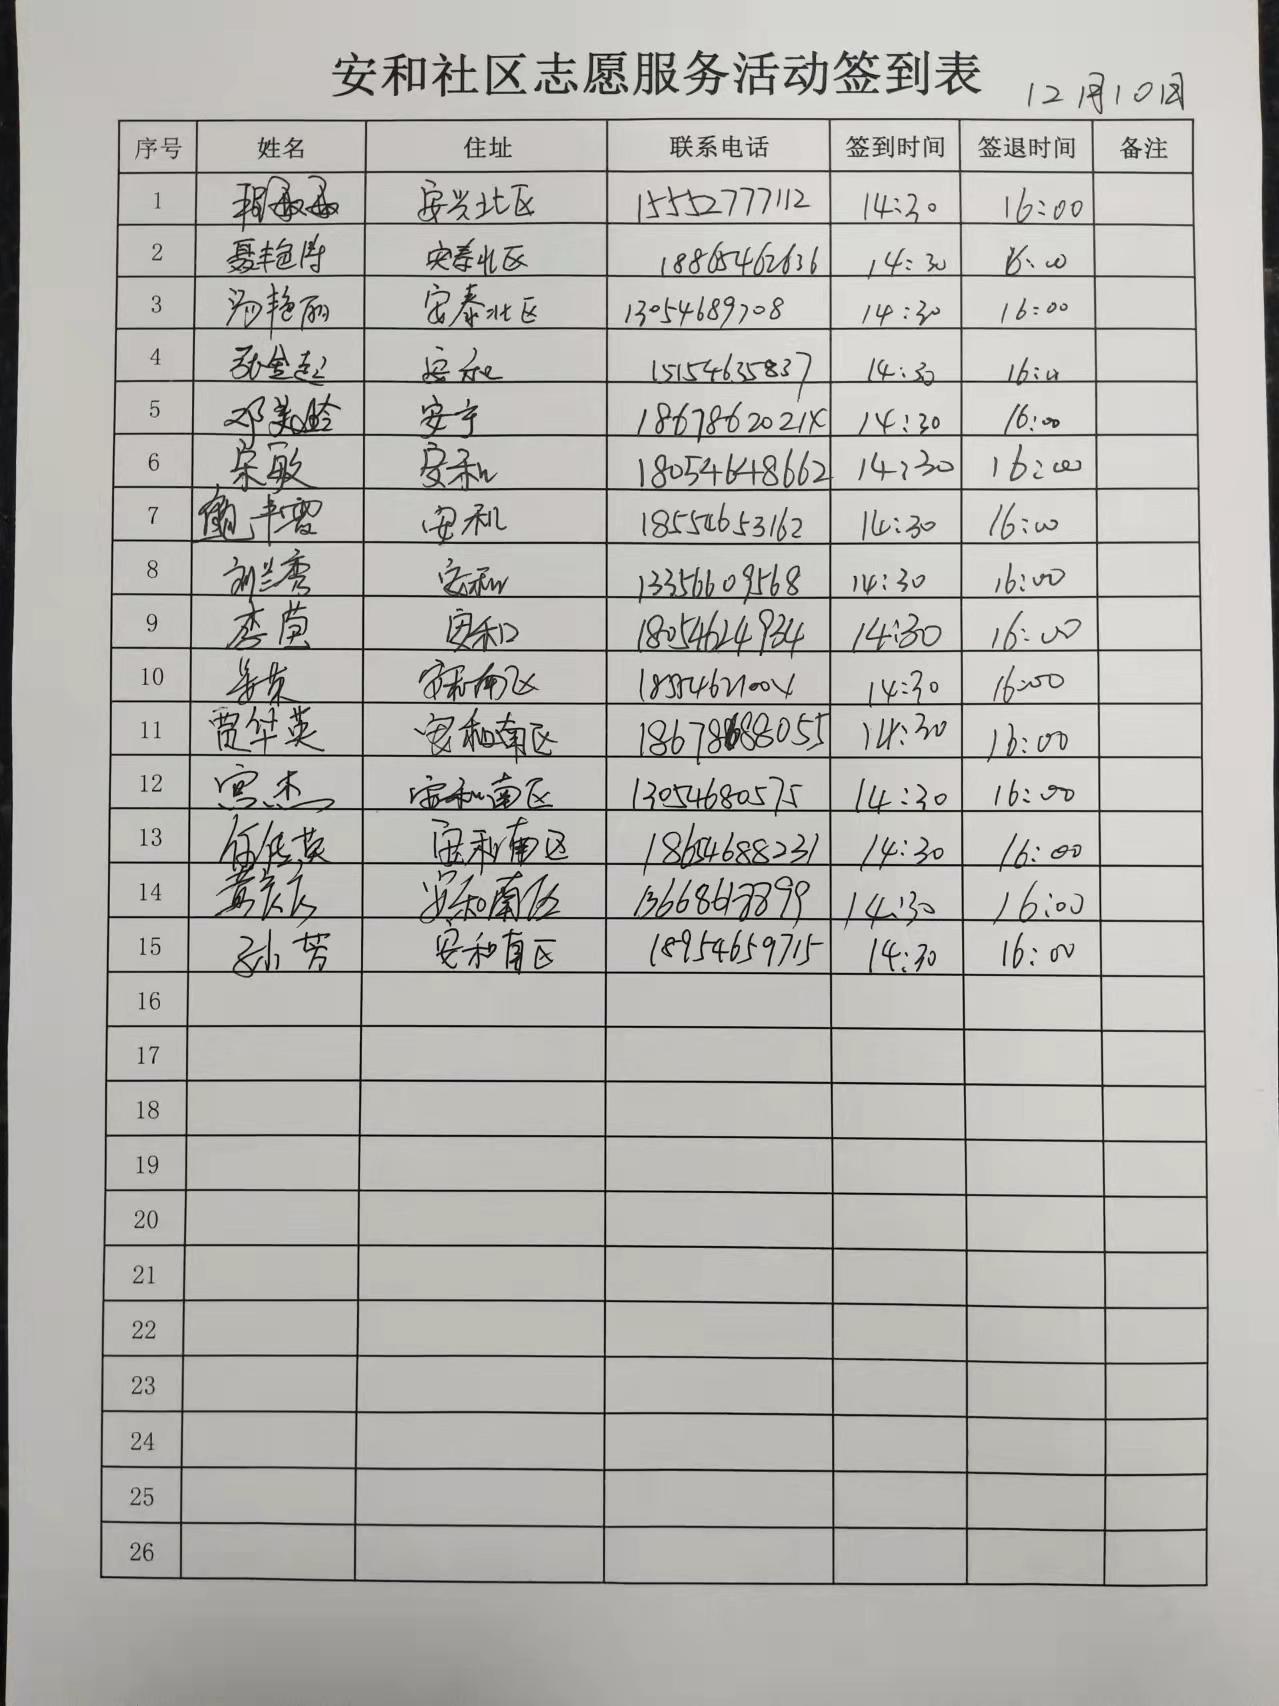 安和社区志愿服务活动签到表
12月10日
序号 姓名 住址 联系电话 签到时间 签退时间 备注
1 安兴北区 15552777112 14:30 16:00
2 聂艳涛 安泰北区 18865462636 14:30 16:00
3 汤艳丽 安泰北区 13054689708 14:30 16:00
4 安和 15154635837 14:30 16:00
5 邓美玲 安宁 1867862021X 14:30 16:00
6 宋敏 安和 18054648662 14:30 16:00
7 安和 18554653162 14:30 16:00
8 刘兰秀 安和 13356609568 14:30 16:00
9 李莫 安和 18054624934 14:30 16:00
10 姜荣 安和南区 14:30 16:00
11 贾华英 安和南区 14:30 16:00
12 宫杰 安和南区 13054680575 14:30 16:00
13 任传英 安和南区 18654688231 14:30 16:00
14 安和南区 14:30 16:00
15 孙芳 安和南区 18954659715 14:30 16:00
16
17
18
19
20
21
22
23
24
25
26